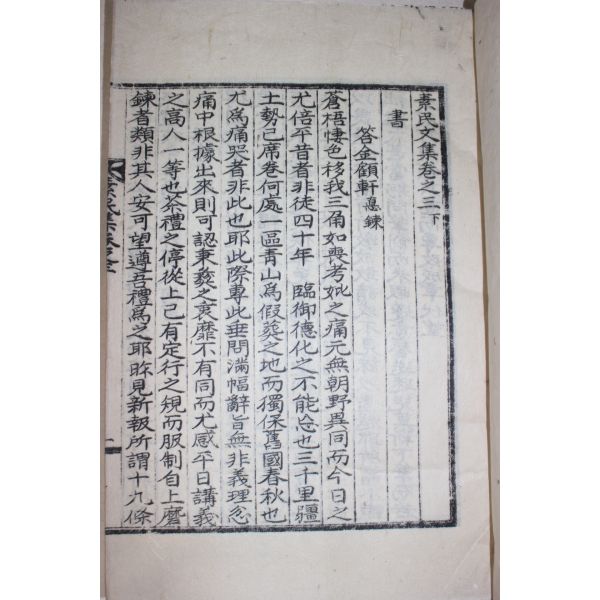 素民文集卷之三下
書
答金顧軒 悳鍊
蒼梧悽色移我三角如喪考妣之痛元無朝野異同而今日之
尤倍平昔者非徒四十年 臨御德化之不能忘也三千里疆
土勢已席卷何處一區青山爲假葬之地而獨保舊國春秋也
尤爲痛哭者非此也耶此際專此垂問滿幅辭旨無非義理忿
痛中根據出來則可認秉彜之衷靡不有同而尤感平日講義
之高人一等也茶禮之停從上已有定行之規而服制自上麼
鍊者類非其人安可望遵吾禮爲之耶昨見新報所謂十九條